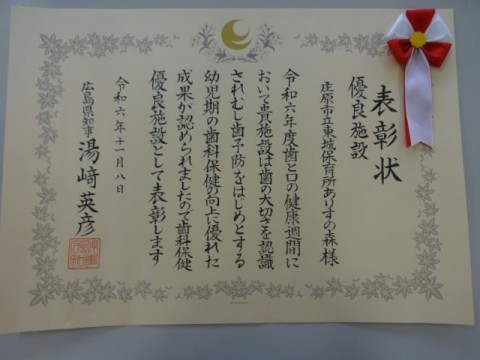 表彰状
優良施設
庄原市立東城保育所ありすの森様
令和六年度歯と口の健康週間に
おいて貴施設は歯の大切さを認識
されむし歯予防をはじめとする
幼児期の歯科保健の向上に優れた
成果が認められましたので歯科保健
優良施設として表彰します
令和六年十一月八日
広島県知事 湯﨑英彦